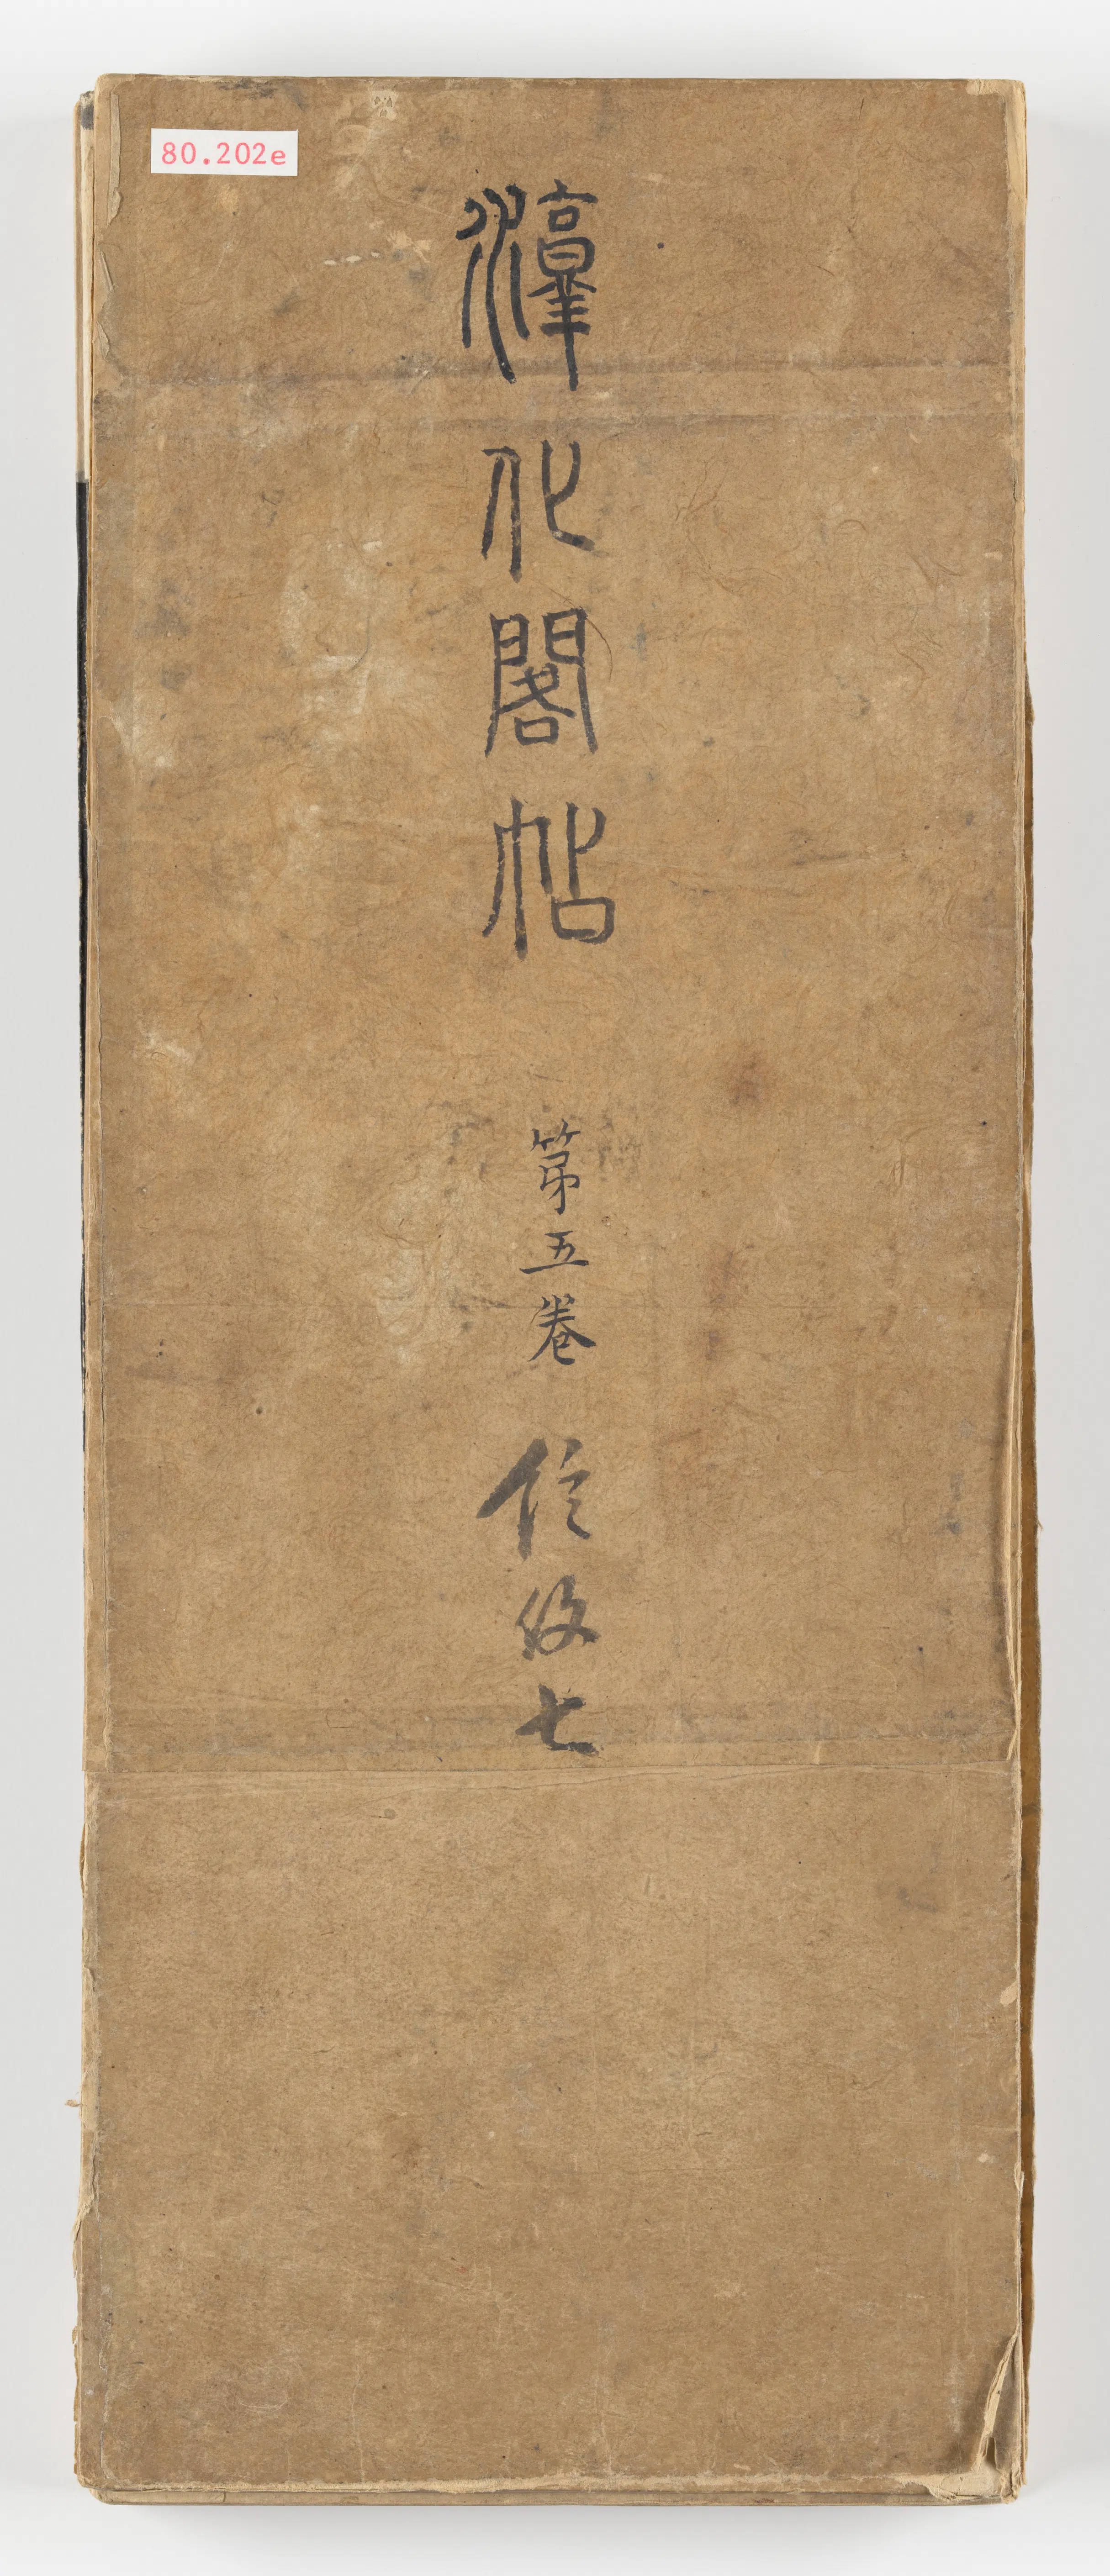 80.202e
淳化閣帖
第五卷
信後七